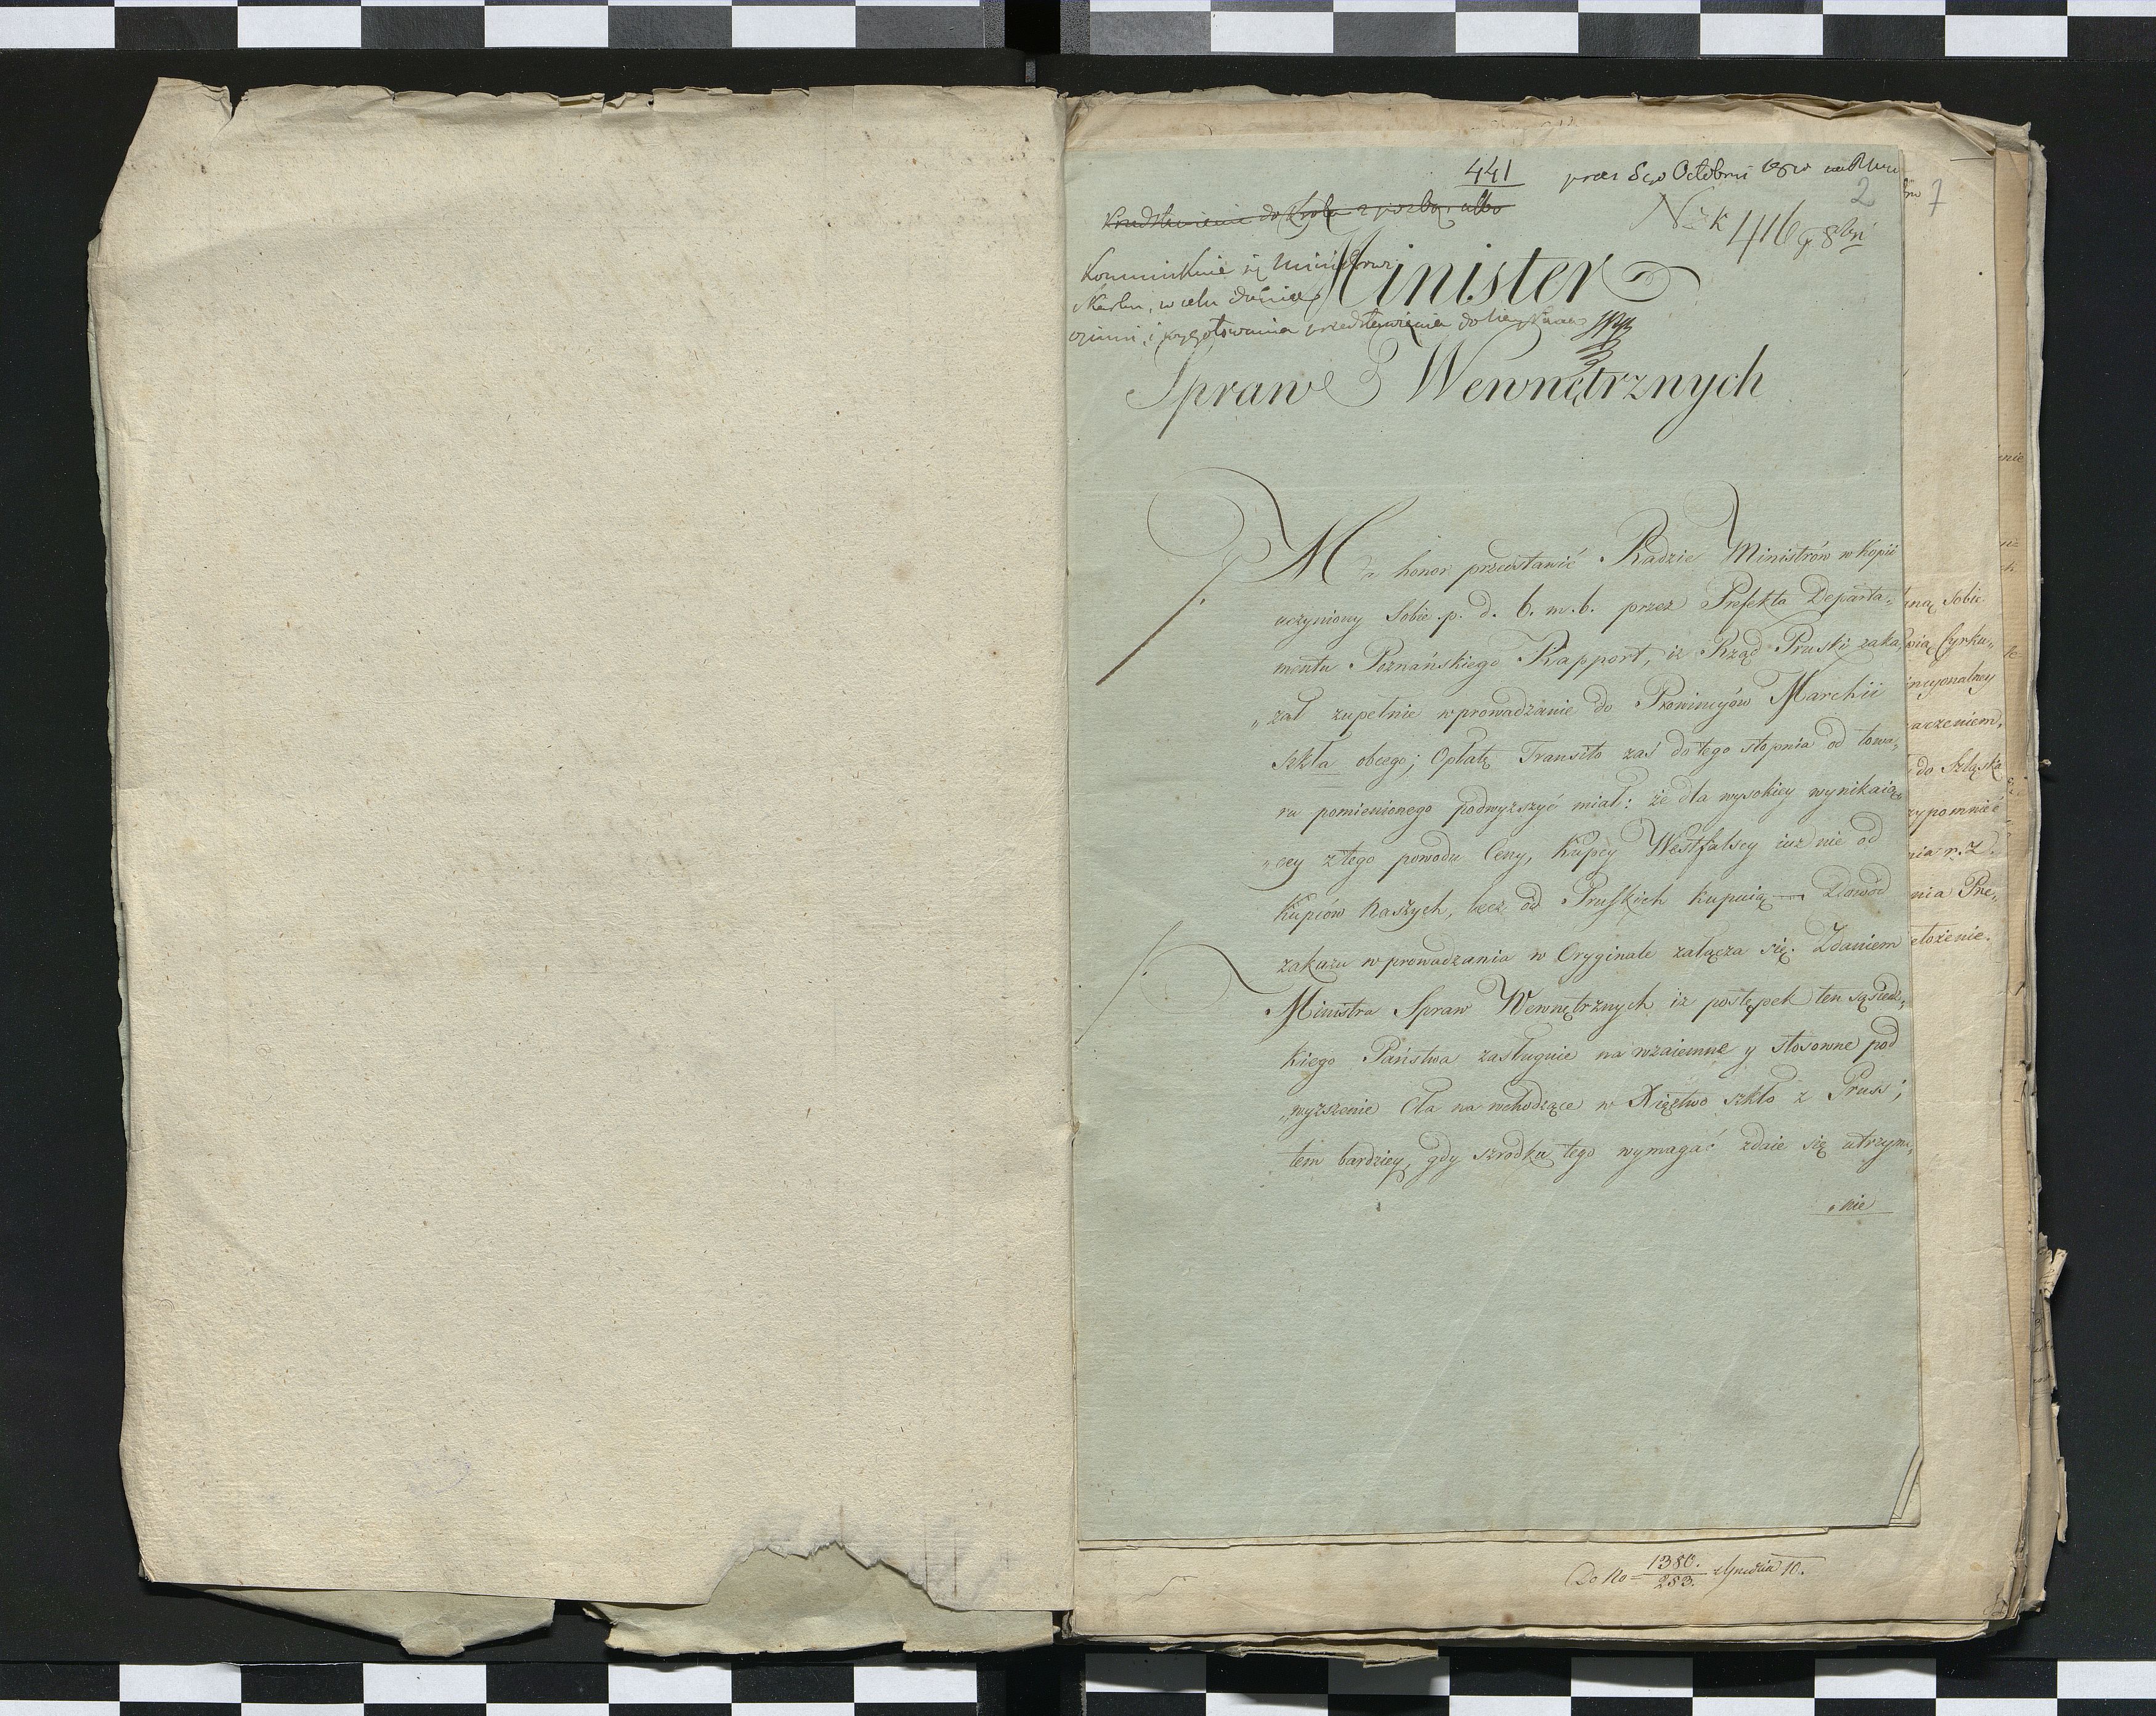 441
2
7
N 416
Kommunikuie się Ministrowi
Skarbu, w celu dania
opinii, i przygotowania przedstawienia do
Minister
Spraw Wewnętrznych
Ma honor przedstawić Radzie Ministrów w kopii
uczyniony Sobie p. d. 6. m. b. przez Prefekta Departa„
mentu Poznańskiego Rapport, iż Rząd Pruski zaka„
„zał zupełnie wprowadzanie do Prowincyów Marchii
szkła obcego; Opłatę Transito zaś do tego stopnia od towa„
ru pomienionego podwyższyć miał: że dla wysokiey wynikaią„
„cey z tego powodu Ceny, Kupcy Westfalscy iuż nie od
Kupców Naszych, lecz od Pruskich kupuią — Dowód
zakazu wprowadzania w Oryginale załącza się. Zdaniem
Ministra Spraw Wewnętrznych iż postępek ten sąsiedz„
kiego Państwa zasługuie na wzaiemne y stosowne pod
„wyższenie Cła na wchodzące w Xięstwo szkło z Prus;
tem bardziey, gdy szrodka tego wymagać zdaie się utrzyma„
„nie
ną Sobie
Cyrku„
ncyonalney
aczeniem,
do Szląska
zypomnieć
nia r. z.
nia Pre„
ełożenie.
Do No 1380. / 253. z Grudnia 10.